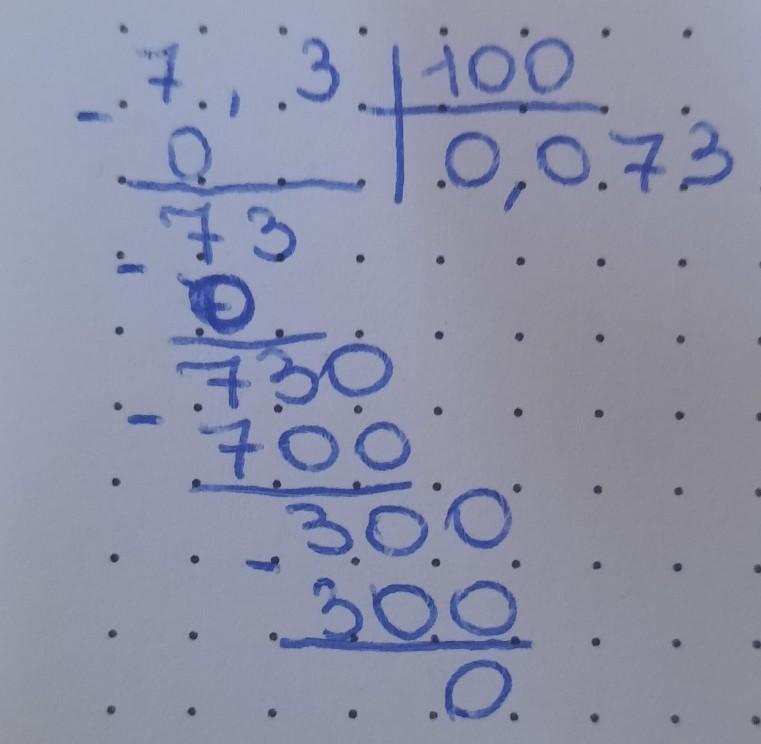 7,3 | 100
- 0 | 0,073
73
- 0
730
- 700
300
- 300
0